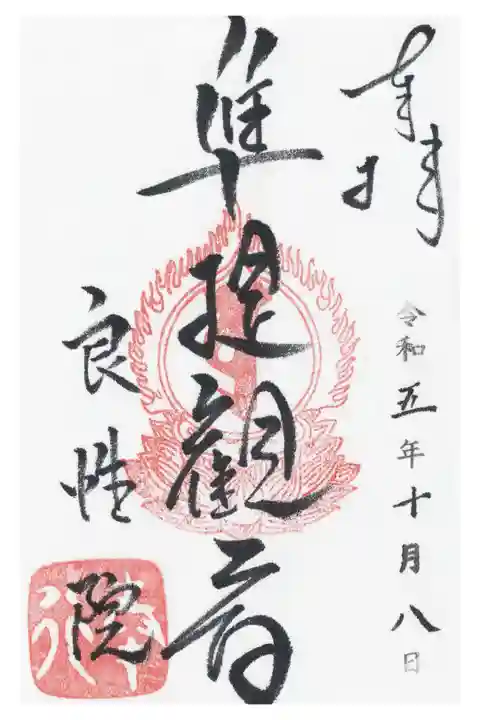 奉拝
令和五年十月八日
隼提観音
良性院